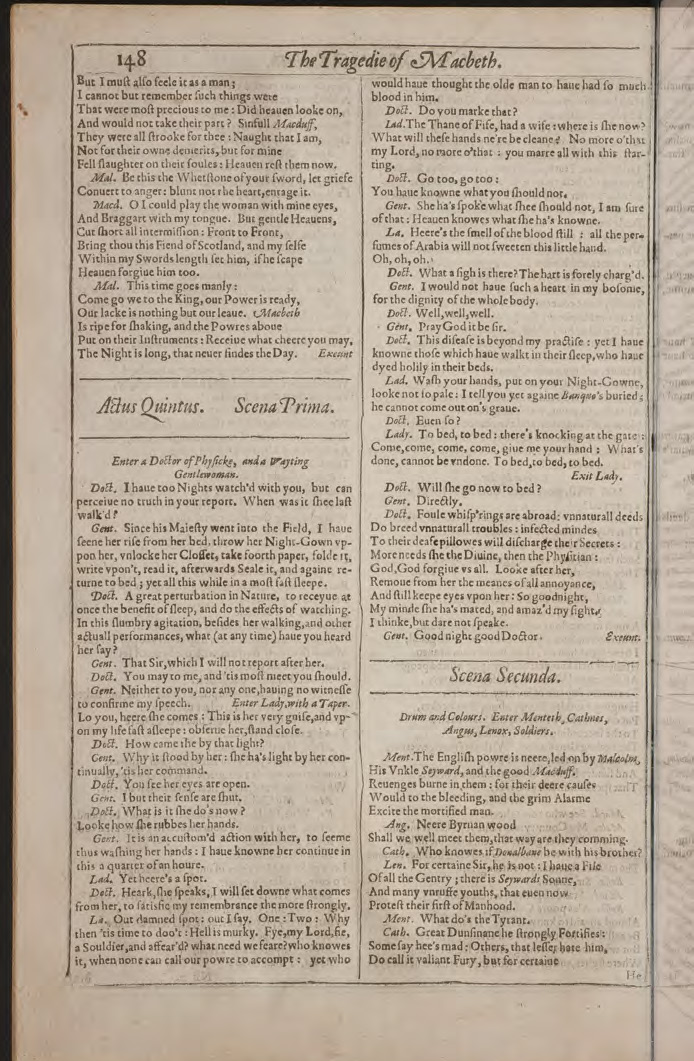 148
The Tragedie of Macbeth.
But I muſt alſo feele it as a man;
I cannot but remember ſuch things were
That were moſt precious to me: Did heauen looke on,
And would not take their part? Sinfull Macduff,
They were all ſtrooke for thee: Naught that I am,
Not for their owne demerits, but for mine
Fell ſlaughter on their ſoules: Heauen reſt them now.
Mal. Be this the Whetſtone of your ſword, let griefe
Conuert to anger: blunt not the heart, enrage it.
Macd. O I could play the woman with mine eyes,
And Braggart with my tongue. But gentle Heauens,
Cut ſhort all intermiſſion: Front to Front,
Bring thou this Fiend of Scotland, and my ſelfe
Within my Swords length ſet him, if he ſcape
Heauen forgiue him too.
Mal. This time goes manly:
Come go we to the King, our Power is ready,
Our lacke is nothing but our leaue. Macbeth
Is ripe for ſhaking, and the Powres aboue
Put on their Inſtruments: Receiue what cheere you may,
The Night is long, that neuer findes the Day. Exeunt
Actus Quintus. Scena Prima.
Enter a Doctor of Phyſicke, and a Wayting
Gentlewoman.
Doct. I haue too Nights watch'd with you, but can
perceiue no truth in your report. When was it ſhee laſt
walk'd?
Gent. Since his Maieſty went into the Field, I haue
ſeene her riſe from her bed, throw her Night-Gown vp-
pon her, vnlocke her Cloſſet, take foorth paper, folde it,
write vpon't, read it, afterwards Seale it, and againe re-
turne to bed; yet all this while in a moſt faſt ſleepe.
Doct. A great perturbation in Nature, to receyue at
once the benefit of ſleep, and do the effects of watching.
In this ſlumbry agitation, beſides her walking, and other
actuall performances, what (at any time) haue you heard
her ſay?
Gent. That Sir, which I will not report after her.
Doct. You may to me, and 'tis moſt meet you ſhould.
Gent. Neither to you, nor any one, hauing no witneſſe
to confirme my ſpeech. Enter Lady, with a Taper.
Lo you, heere ſhe comes: This is her very guiſe, and vp-
on my life faſt aſleepe: obſerue her, ſtand cloſe.
Doct. How came ſhe by that light?
Gent. Why it ſtood by her: ſhe ha's light by her con-
tinually, 'tis her command.
Doct. You ſee her eyes are open.
Gent. I but their ſenſe are ſhut.
Doct. What is it ſhe do's now?
Looke how ſhe rubbes her hands.
Gent. It is an accuſtom'd action with her, to ſeeme
thus waſhing her hands: I haue knowne her continue in
this a quarter of an houre.
Lad. Yet heere's a ſpot.
Doct. Heark, ſhe ſpeaks, I will ſet downe what comes
from her, to ſatisfie my remembrance the more ſtrongly.
La. Out damned ſpot: out I ſay. One: Two: Why
then 'tis time to doo't: Hell is murky. Fye, my Lord, fie,
a Souldier, and affear'd? what need we feare? who knowes
it, when none can call our powre to accompt: yet who
would haue thought the olde man to haue had ſo much
blood in him.
Doct. Do you marke that?
Lad. The Thane of Fife, had a wife: where is ſhe now?
What will theſe hands ne're be cleane? No more o'that
my Lord, no more o'that: you marre all with this ſtar-
ting.
Doct. Go too, go too:
You haue knowne what you ſhould not.
Gent. She ha's ſpoke what ſhee ſhould not, I am ſure
of that: Heauen knowes what ſhe ha's knowne.
La. Heere's the ſmell of the blood ſtill: all the per-
fumes of Arabia will not ſweeten this little hand.
Oh, oh, oh.
Doct. What a ſigh is there? The hart is ſorely charg'd.
Gent. I would not haue ſuch a heart in my boſome,
for the dignity of the whole body.
Doct. Well, well, well.
Gent. Pray God it be ſir.
Doct. This diſeaſe is beyond my practiſe: yet I haue
knowne thoſe which haue walkt in their ſleep, who haue
dyed holily in their beds.
Lad. Waſh your hands, put on your Night-Gowne,
looke not ſo pale: I tell you yet againe Banquo's buried;
he cannot come out on's graue.
Doct. Euen ſo?
Lady. To bed, to bed: there's knocking at the gate:
Come, come, come, come, giue me your hand: What's
done, cannot be vndone. To bed, to bed, to bed.
Exit Lady.
Doct. Will ſhe go now to bed?
Gent. Directly.
Doct. Foule whiſp'rings are abroad: vnnaturall deeds
Do breed vnnaturall troubles: infected mindes
To their deafe pillowes will diſcharge their Secrets:
More needs ſhe the Diuine, then the Phyſitian:
God, God forgiue vs all. Looke after her,
Remoue from her the meanes of all annoyance,
And ſtill keepe eyes vpon her: So goodnight,
My minde ſhe ha's mated, and amaz'd my ſight.
I thinke, but dare not ſpeake.
Gent. Good night good Doctor. Exeunt.
Scena Secunda.
Drum and Colours. Enter Menteth, Cathnes,
Angus, Lenox, Soldiers.
Ment. The Engliſh powre is neere, led on by Malcolm,
His Vnkle Seyward, and the good Macduff.
Reuenges burne in them: for their deere cauſes
Would to the bleeding, and the grim Alarme
Excite the mortified man.
Ang. Neere Byrnan wood
Shall we well meet them, that way are they comming.
Cath. Who knowes if Donalbane be with his brother?
Len. For certaine Sir, he is not: I haue a File
Of all the Gentry; there is Seywards Sonne,
And many vnruffe youths, that euen now
Proteſt their firſt of Manhood.
Ment. What do's the Tyrant.
Cath. Great Dunſinane he ſtrongly Fortifies:
Some ſay hee's mad: Others, that leſſer hate him,
Do call it valiant Fury, but for certaine
He